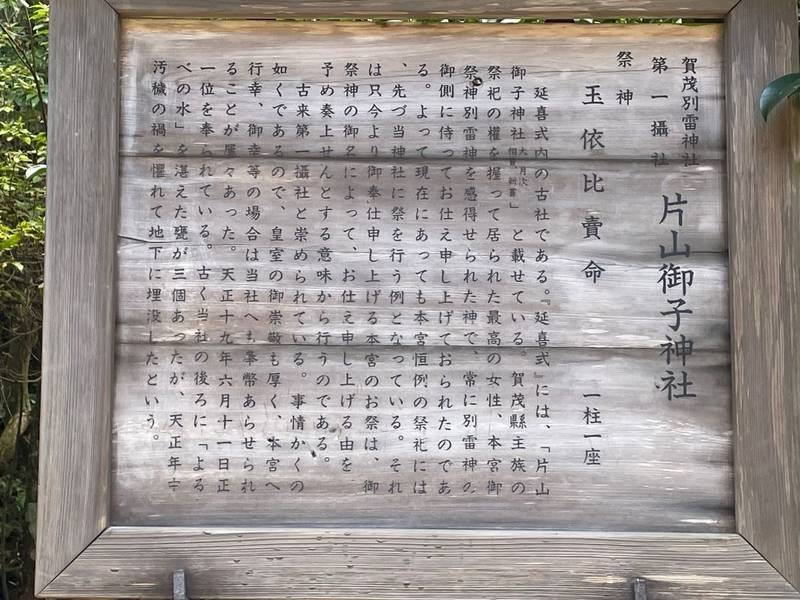 賀茂別雷神社
第一攝社
片山御子神社
祭神
玉依比賣命 一柱一座
延喜式内の古社である。『延喜式』には、「片山
御子神社大 月次 相嘗 新嘗」と載せている。賀茂縣主族の
祭祀の權を握って居られた最高の女性、本宮御
祭神別雷神を感得せられた神で、常に別雷神の
御側に侍ってお仕え申し上げておられたのであ
る。よって現在にあっても本宮恒例の祭祀には
、先づ当神社に祭を行う例となっている。それ
は只今より御奉仕申し上げる本宮のお祭は、御
祭神の御名によって、お仕え申し上げる由を
予め奏上せんとする意味から行うのである。
古来第一攝社と崇められている。事情かくの
如くであるので、皇室の御崇敬も厚く、本宮へ
行幸、御幸等の場合は当社へも奉幣あらせられ
ることが屡々あった。天正十九年六月十一日正
一位を奉られている。古く当社の後ろに「よる
べの水」を湛えた甕が三個あったが、天正年中
汚穢の禍を懼れて地下に埋没したという。